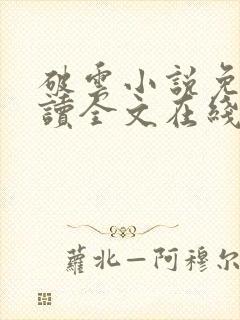 破雲小説免
讀全文在綫
蘿北—阿穆尔